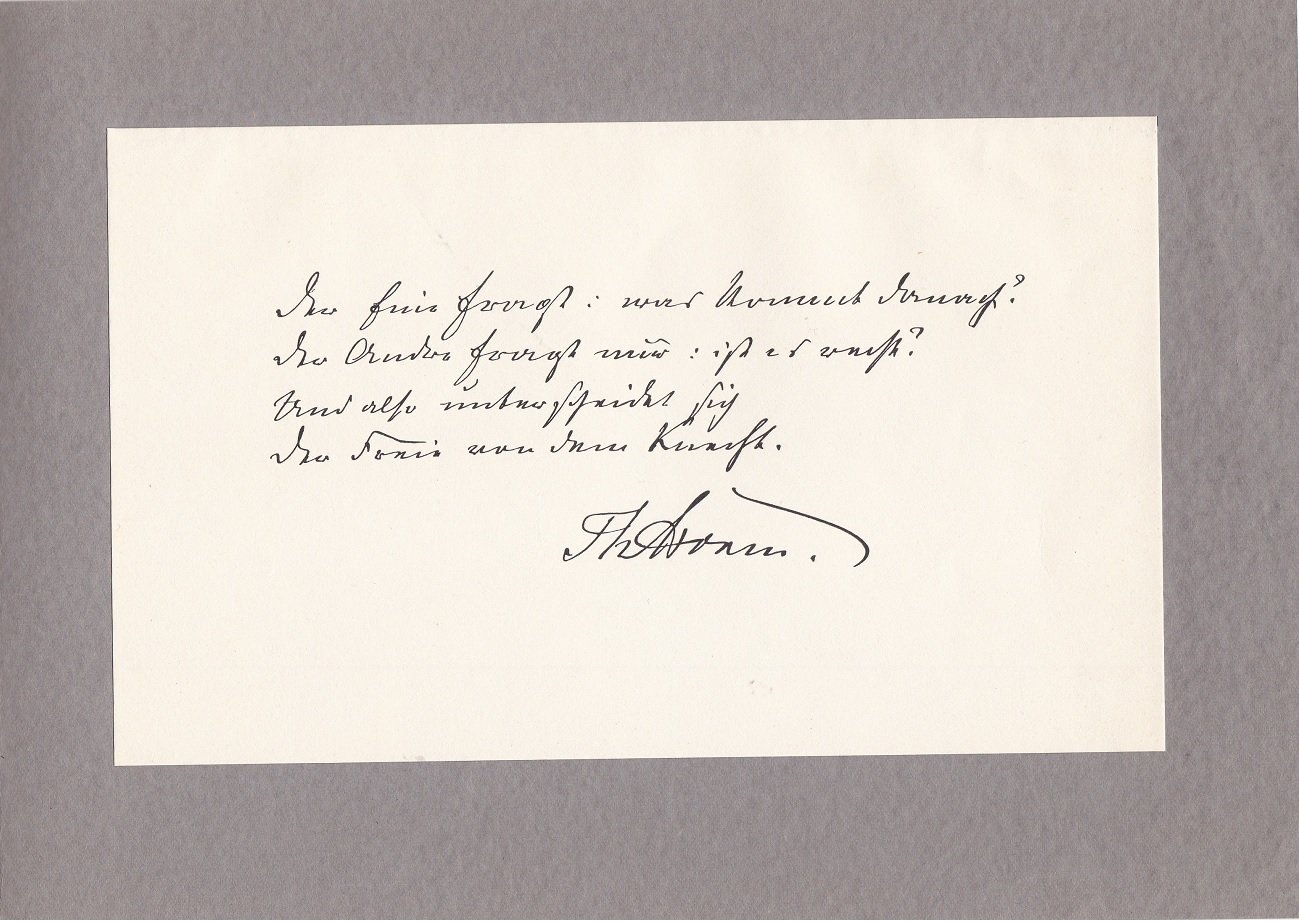 Der Eine fragt: was kommt danach?
Der Andre fragt nur: ist es recht?
Und also unterscheidet sich
Der Freie von dem Knecht.
ThStorm.